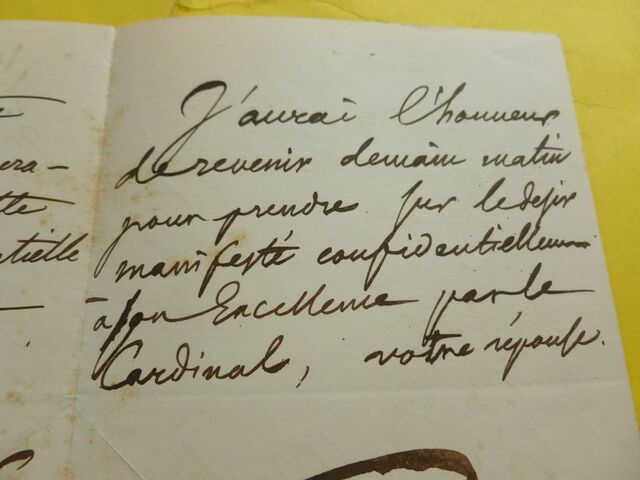 J'aurai l'honneur
de revenir demain matin
pour prendre sur le désir
manifesté confidentiellement
à Son Excellence par le
Cardinal, votre réponse.
era-
tte
ntielle